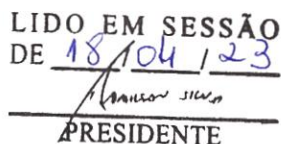 LIDO EM SESSÃO
DE 18/04/23
SILVA
PRESIDENTE